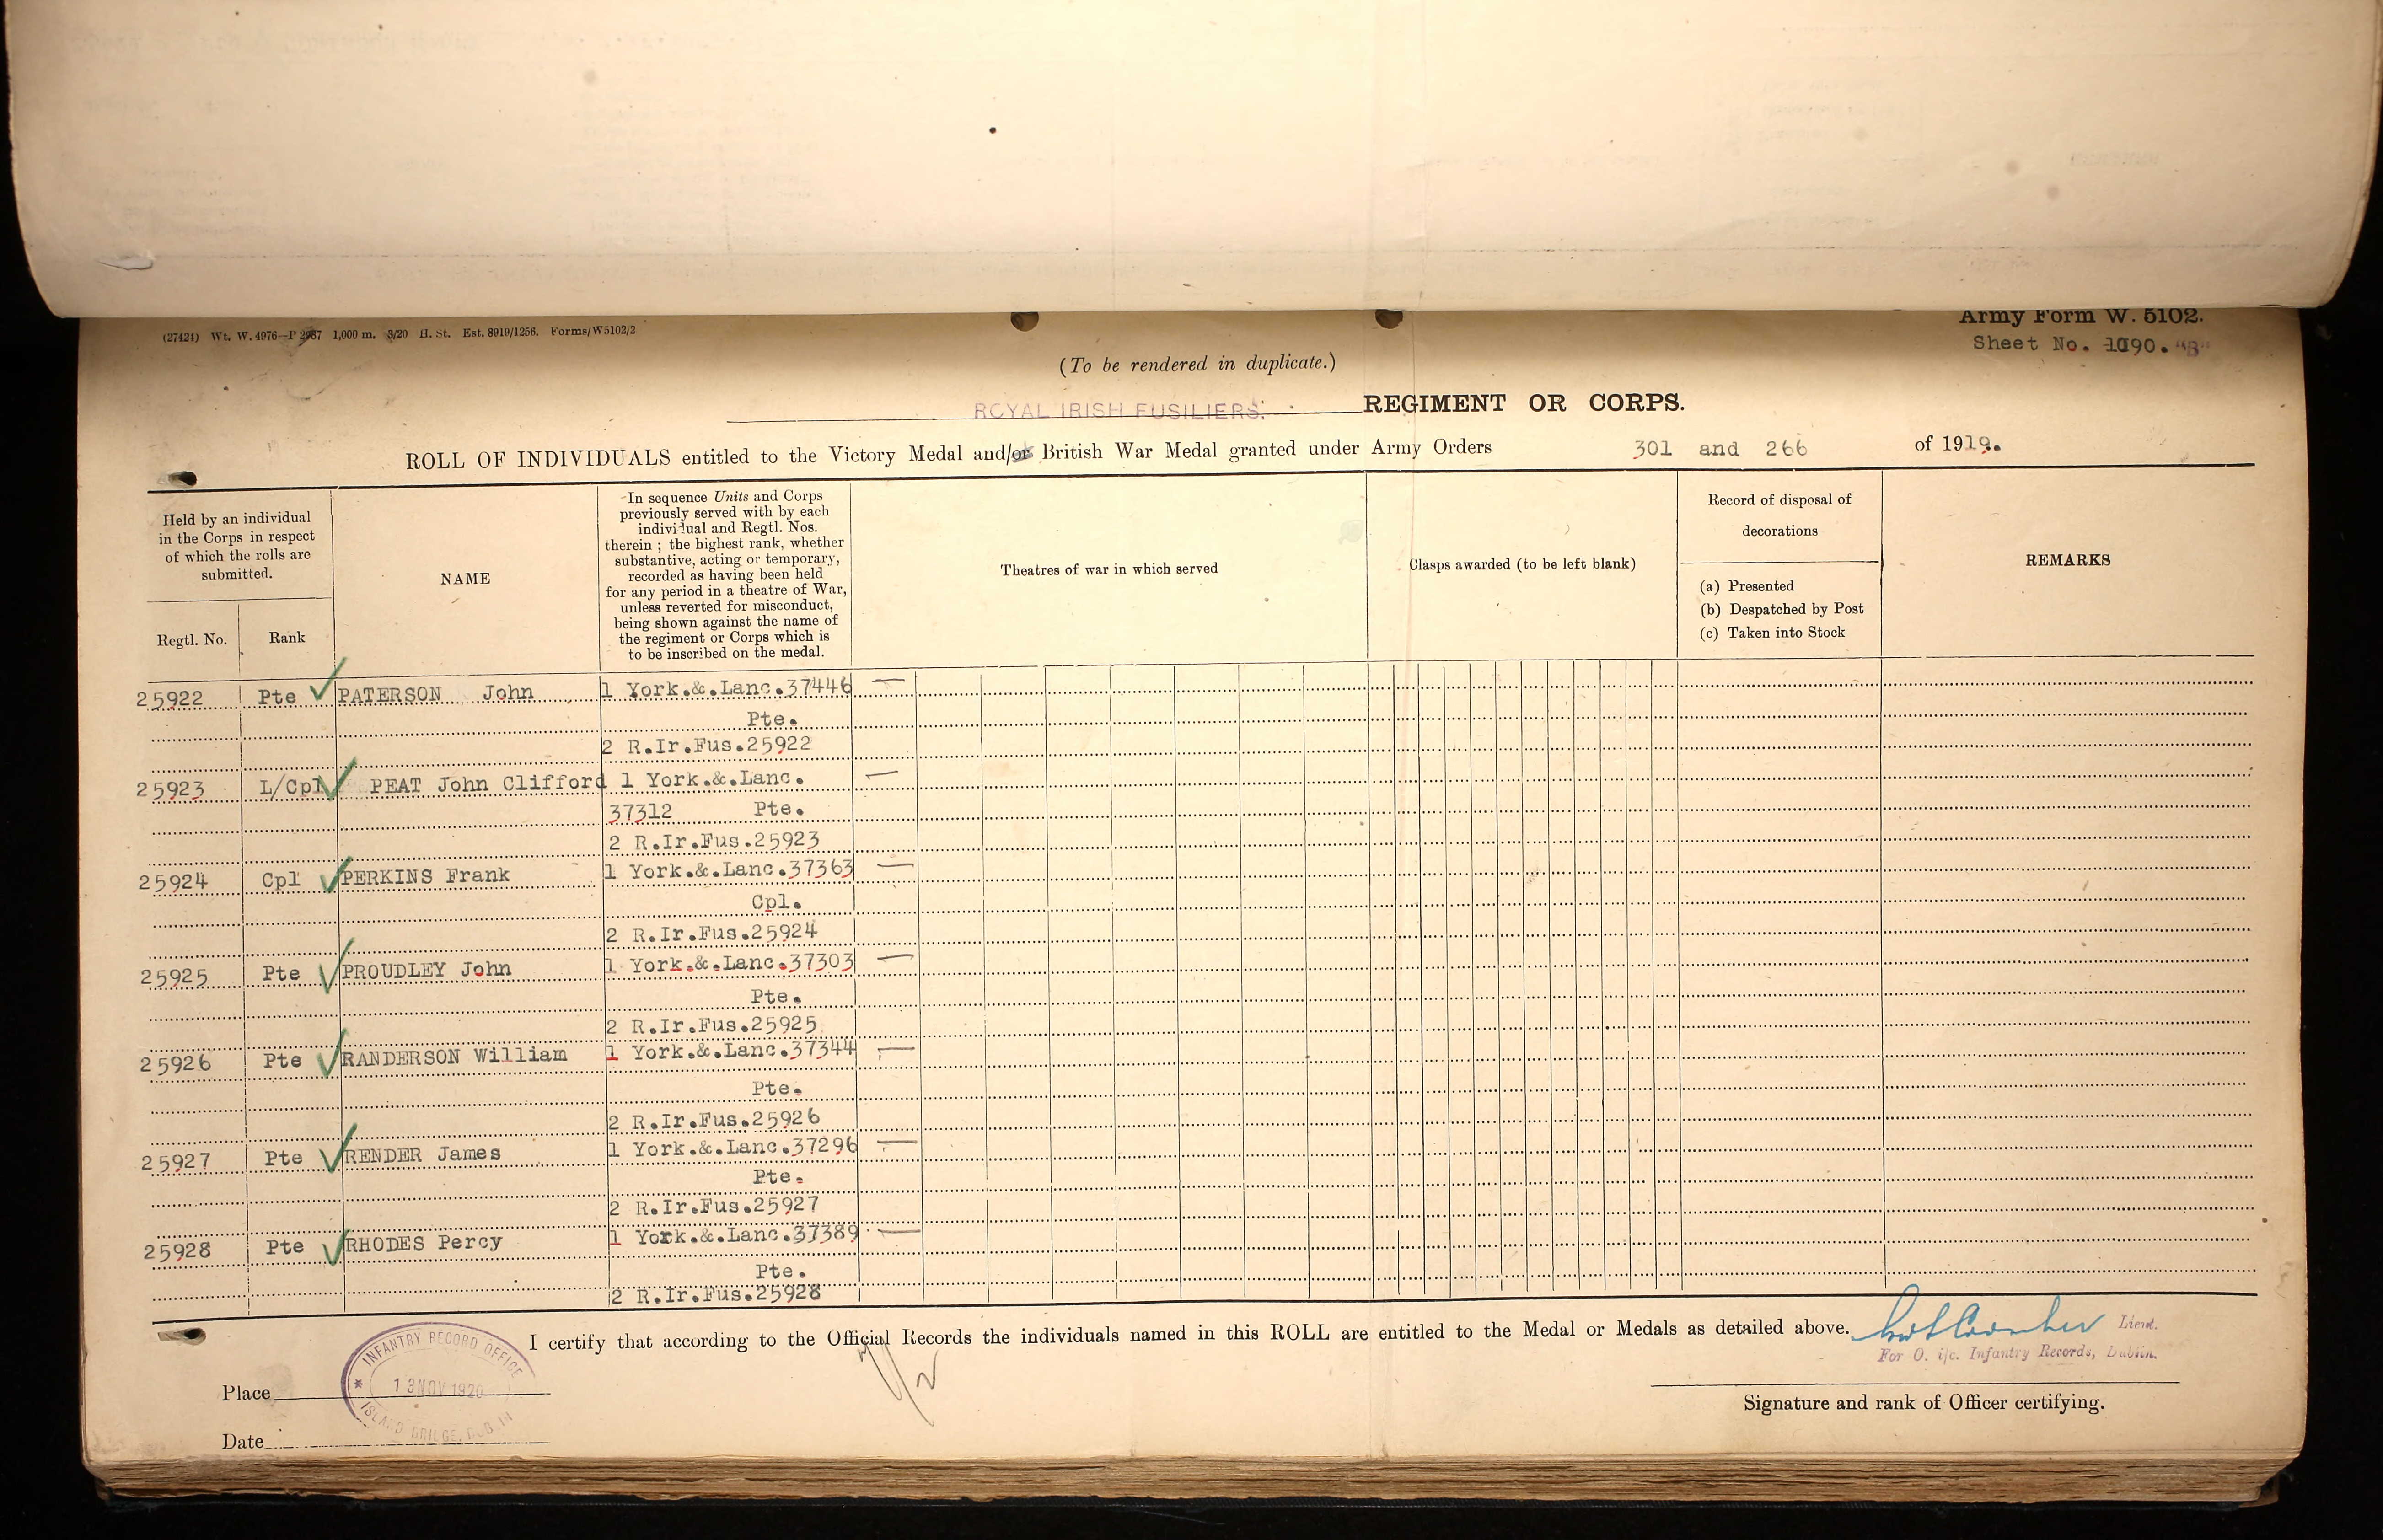 (27424) Wt. W. 4976—P 2987 1,000 m. 3/20 H. St. Est. 8919/1256. Forms/W5102/2
Army Form W. 5102.
Sheet No. 1090. "B"
(To be rendered in duplicate.)
ROYAL IRISH FUSILIERS. REGIMENT OR CORPS.
ROLL OF INDIVIDUALS entitled to the Victory Medal and/or British War Medal granted under Army Orders 301 and 266 of 1919.
Held by an individual
in the Corps in respect
of which the rolls are
submitted.
Regtl. No.
Rank
NAME
In sequence Units and Corps
previously served with by each
individual and Regtl. Nos.
therein ; the highest rank, whether
substantive, acting or temporary,
recorded as having been held
for any period in a theatre of War,
unless reverted for misconduct,
being shown against the name of
the regiment or Corps which is
to be inscribed on the medal.
Theatres of war in which served
Clasps awarded (to be left blank)
Record of disposal of
decorations
(a) Presented
(b) Despatched by Post
(c) Taken into Stock
REMARKS
25922 Pte PATERSON John 1 York.&.Lanc.37446 —
Pte.
2 R.Ir.Fus.25922
25923 L/Cpl PEAT John Clifford 1 York.&.Lanc. —
37312 Pte.
2 R.Ir.Fus.25923
25924 Cpl PERKINS Frank 1 York.&.Lanc.37363 —
Cpl.
2 R.Ir.Fus.25924
25925 Pte PROUDLEY John 1 York.&.Lanc.37303 —
Pte.
2 R.Ir.Fus.25925
25926 Pte RANDERSON William 1 York.&.Lanc.37344 —
Pte.
2 R.Ir.Fus.25926
25927 Pte RENDER James 1 York.&.Lanc.37296 —
Pte.
2 R.Ir.Fus.25927
25928 Pte RHODES Percy 1 York.&.Lanc.37389 —
Pte.
2 R.Ir.Fus.25928
I certify that according to the Official Records the individuals named in this ROLL are entitled to the Medal or Medals as detailed above.
Lieut.
For O. i/c. Infantry Records, Dublin.
INFANTRY RECORD OFFICE
13 NOV 1920
ISLAND BRIDGE, DUBLIN
Place
Date
Signature and rank of Officer certifying.